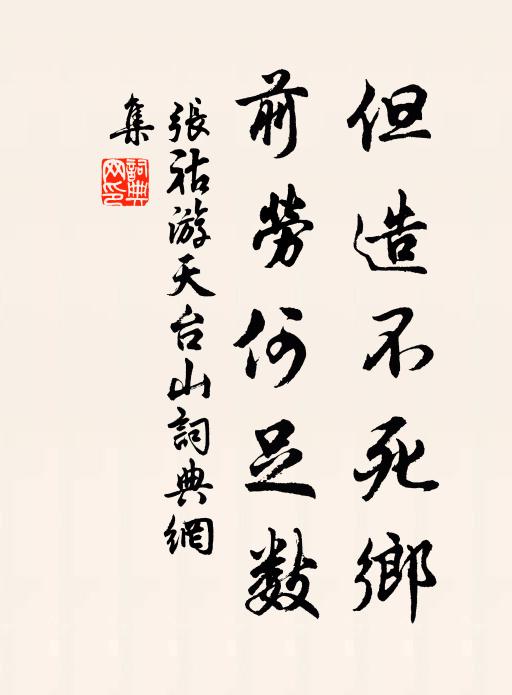 但造不死鄉
前勞何足數
張祜游天台山詞典網
集
詞典網印